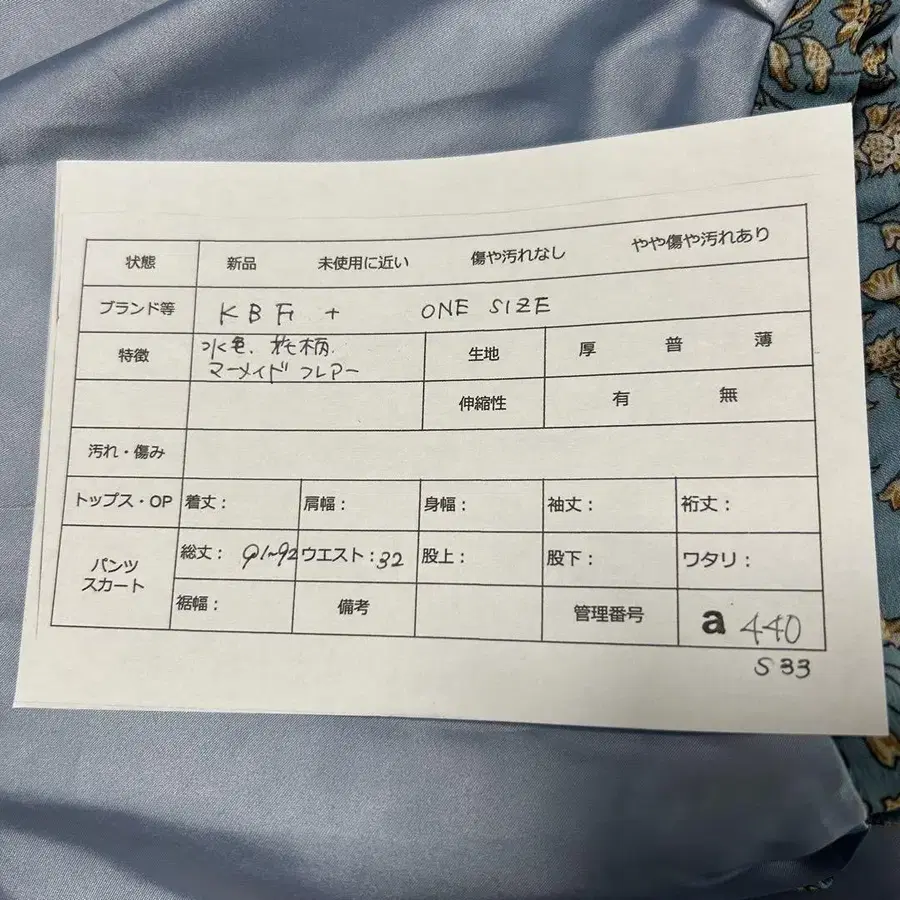 状態 新品 未使用に近い 傷や汚れなし やや傷や汚れあり
ブランド等 KBF + ONE SIZE
特徴 水色、花柄 生地 厚 普 薄
マーメイドフレアー
伸縮性 有 無
汚れ・傷み
トップス・OP 着丈： 肩幅： 身幅： 袖丈： 裄丈：
パンツ スカート 総丈：91~92 ウエスト：32 股上： 股下： ワタリ：
裾幅： 備考 管理番号 a 440
S33